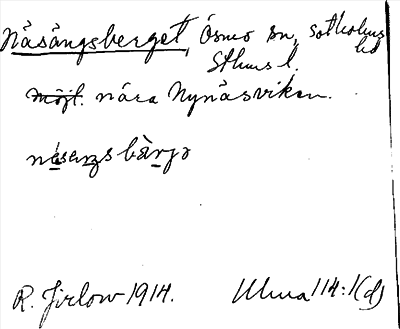 Näsängsberget, Ösmo sn, Sotholms hd
Sthms l.
nära Nynäsviken.
R. Jirlow 1914. Ulma 114:1(d)